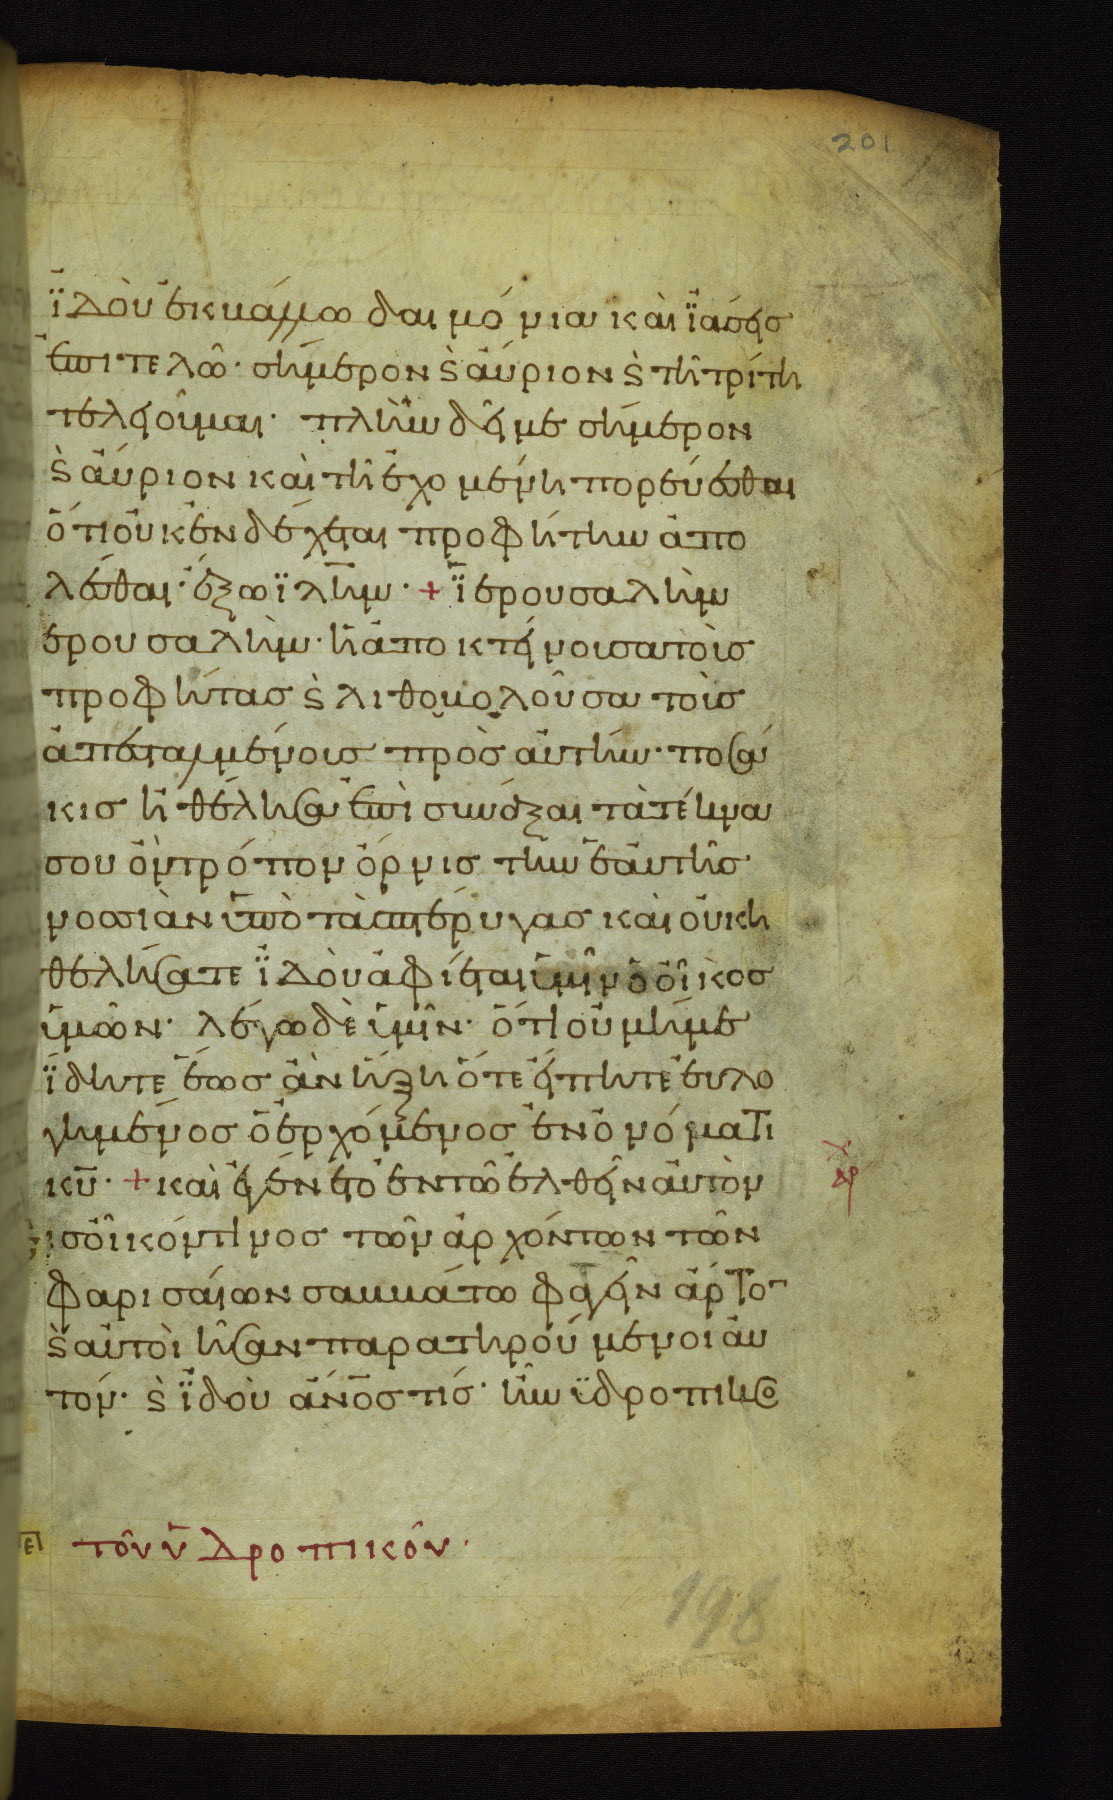 201
ἰδοὺ ἐκβάλλω δαιμόνια καὶ ἰάσεις
ἐπιτελῶ· σήμερον ϗ αὔριον ϗ τῆ τρίτη
τελειοῦμαι· πλὴν δεῖ με σήμερον
ϗ αὔριον καὶ τῆ ἐχομένη πορεύεσθαι
ὅτι οὐκ ἐνδέχεται προφήτην ἀπο
λέσθαι ἔξω ἰλῆμ· + ἰερουσαλὴμ
ερουσαλὴμ· ἡ ἀποκτείνουσα τοὺς
προφήτας ϗ λιθοβολοῦσα τοὺς
ἀπεσταλμένους πρὸς αὐτήν· ποσά
κις ἠθέλησα ἐπισυνάξαι τὰ τέκνα
σου ὃν τρόπον ὄρνις τὴν ἑαυτῆς
νοσσιὰν ὑπὸ τὰς πτέρυγας καὶ οὐκ ἠ
θελήσατε ἰδοὺ ἀφίεται ὑμῖν ὁ οἶκος
ὑμῶν· λέγω δὲ ὑμῖν· ὅτι οὐ μή με
ἴδητε ἕως ἂν ἥξη ὅτε εἴπητε εὐλο
γημένος ὁ ἐρχόμενος ἐν ὀνόματι
κυ̅· + καὶ ἐγένετο ἐν τῶ ἐλθεῖν αὐτὸν
εἰς οἶκόν τινος τῶν ἀρχόντων τῶν
φαρισαίων σαββάτω φαγεῖν ἄρτο̅
ϗ αὐτοὶ ἦσαν παρατηρούμενοι αὐ
τόν· ϗ ἰδοὺ ἄνος τίς· ἦν ὑδροπικὸ
τὸν ὑδροπικόν·
198